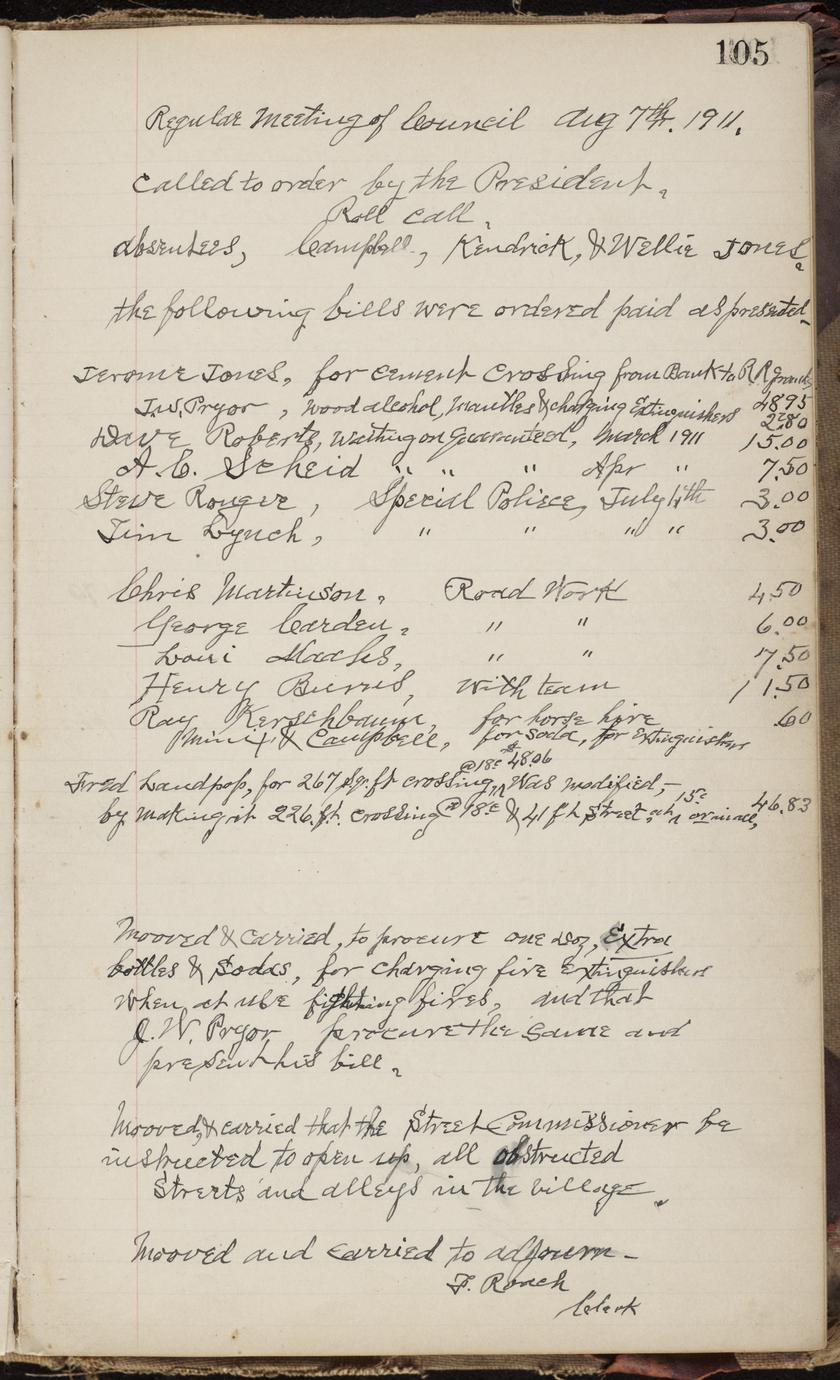 105
Regular Meeting of Council Aug 7th. 1911.
Called to order by the President.
Roll call.
absentees, Campbell, Kendrick, & Wellie Jones.
the following bills were ordered paid as presented-
Jerome Jones, for cement Crossing from Bank to R R
48 95
J.W. Pryor, Wood alcohol, Mantles & charging Extinguishers 2.80
Dave Roberts, Waiting on Guaranteed, March 1911 15.00
A. C. Scheid " " " Apr " 7.50
Steve Rouger, Special Police, July 4th 3.00
Jim Lynch, " " " " 3.00
Chris Martinson. Road Work 4.50
George Carden. " " 6.00
Loui Maahs, " " 7.50
Henry Burris, With team 11.50
Ray Kerschbaum, for horse hire .60
& Campbell, for Soda, for Extinguishers
@ 18c $48.06
Fred for 267 sq. ft crossing, Was modified,-
by making it 226 ft. crossing @ 18c & 41 ft Street, at 15c or in all, 46.83
Mooved & Carried, to procure one doz, Extra
bottles & Sodas, for charging fire Extinguishers
when at use fighting fires, and that
J. W. Pryor procure the same and
present his bill.
Mooved, & carried that the Street Commissioner be
instructed to open up, all obstructed
Streets and alleys in the village.
Mooved and carried to adjourn -
F. Roach
Clerk